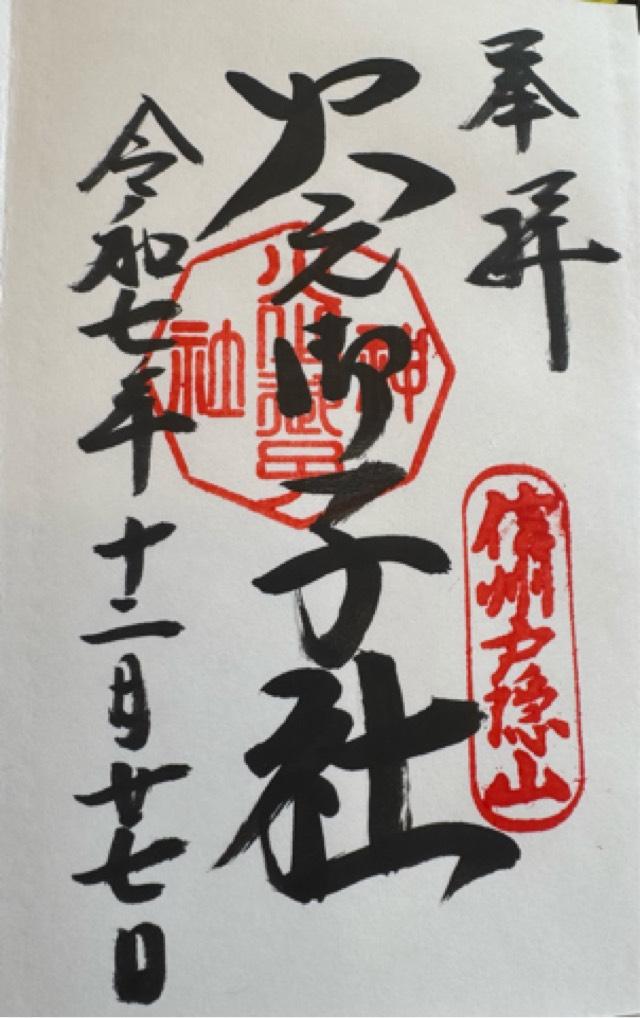 奉拝
信州戸隠山
火之御子社
令和七年十二月廿七日